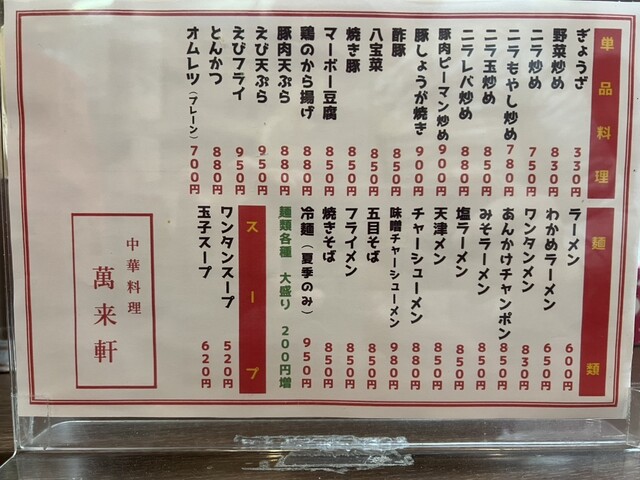 単品料理
ぎょうざ 330円
野菜炒め 830円
ニラ炒め 750円
ニラもやし炒め 780円
ニラ玉炒め 850円
ニラレバ炒め 880円
豚肉ピーマン炒め 900円
豚しょうが焼き 900円
酢豚 850円
八宝菜 850円
焼き豚 850円
マーボー豆腐 850円
鶏のから揚げ 880円
豚肉天ぷら 880円
えび天ぷら 950円
えびフライ 950円
とんかつ 880円
オムレツ(プレーン) 700円
麺類
ラーメン 600円
わかめラーメン 650円
ワンタンメン 830円
あんかけチャンポン 850円
みそラーメン 850円
塩ラーメン 850円
天津メン 850円
チャーシューメン 950円
味噌チャーシューメン 980円
五目そば 850円
フライメン 850円
焼きそば 850円
冷麺(夏季のみ) 950円
麺類各種 大盛り 200円増
スープ
ワンタンスープ 520円
玉子スープ 620円
中華料理
萬来軒